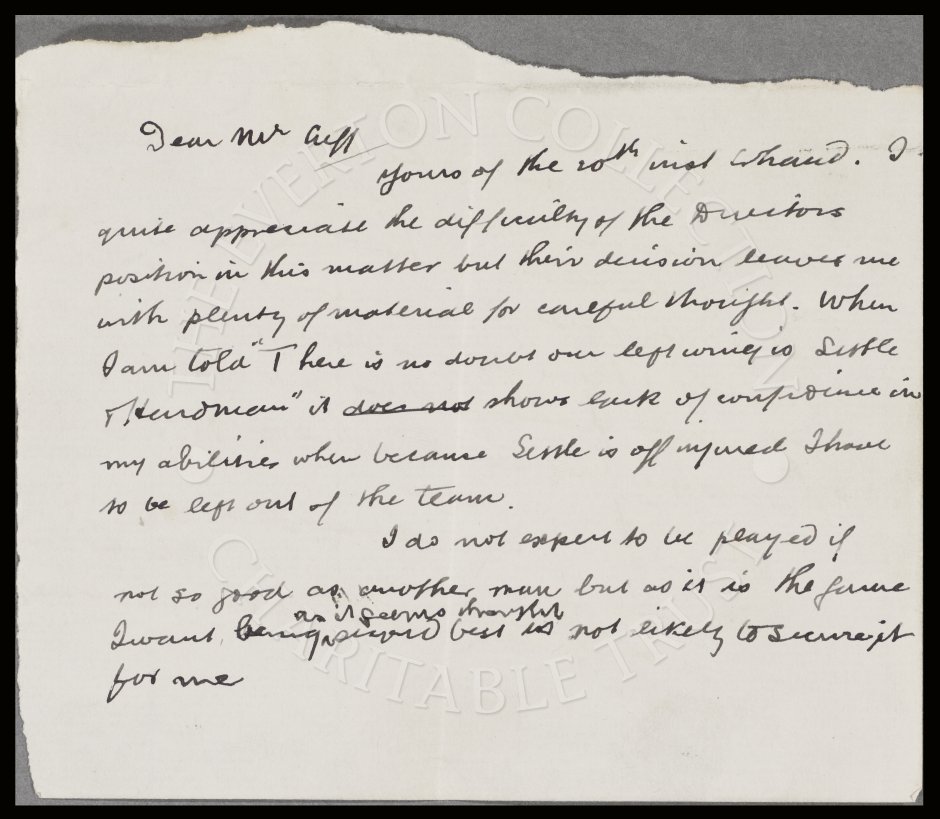 Dear Mr Cuff
yours of the 20th inst to hand. I
quite appreciate the difficulty of the Directors
position in this matter but their decision leaves me
with plenty of material for careful thought. When
I am told "There is no doubt our left wing is Settle
& Hardman" it does not shows lack of confidence in
my abilities when because Settle is off injured I have
to be left out of the team.
I do not expect to be played if
not so good as another man but as it is the game
as it seems thought
I want, being second best is not likely to secure it
for me
THE EVERTON COLLECTION
CHARITABLE TRUST